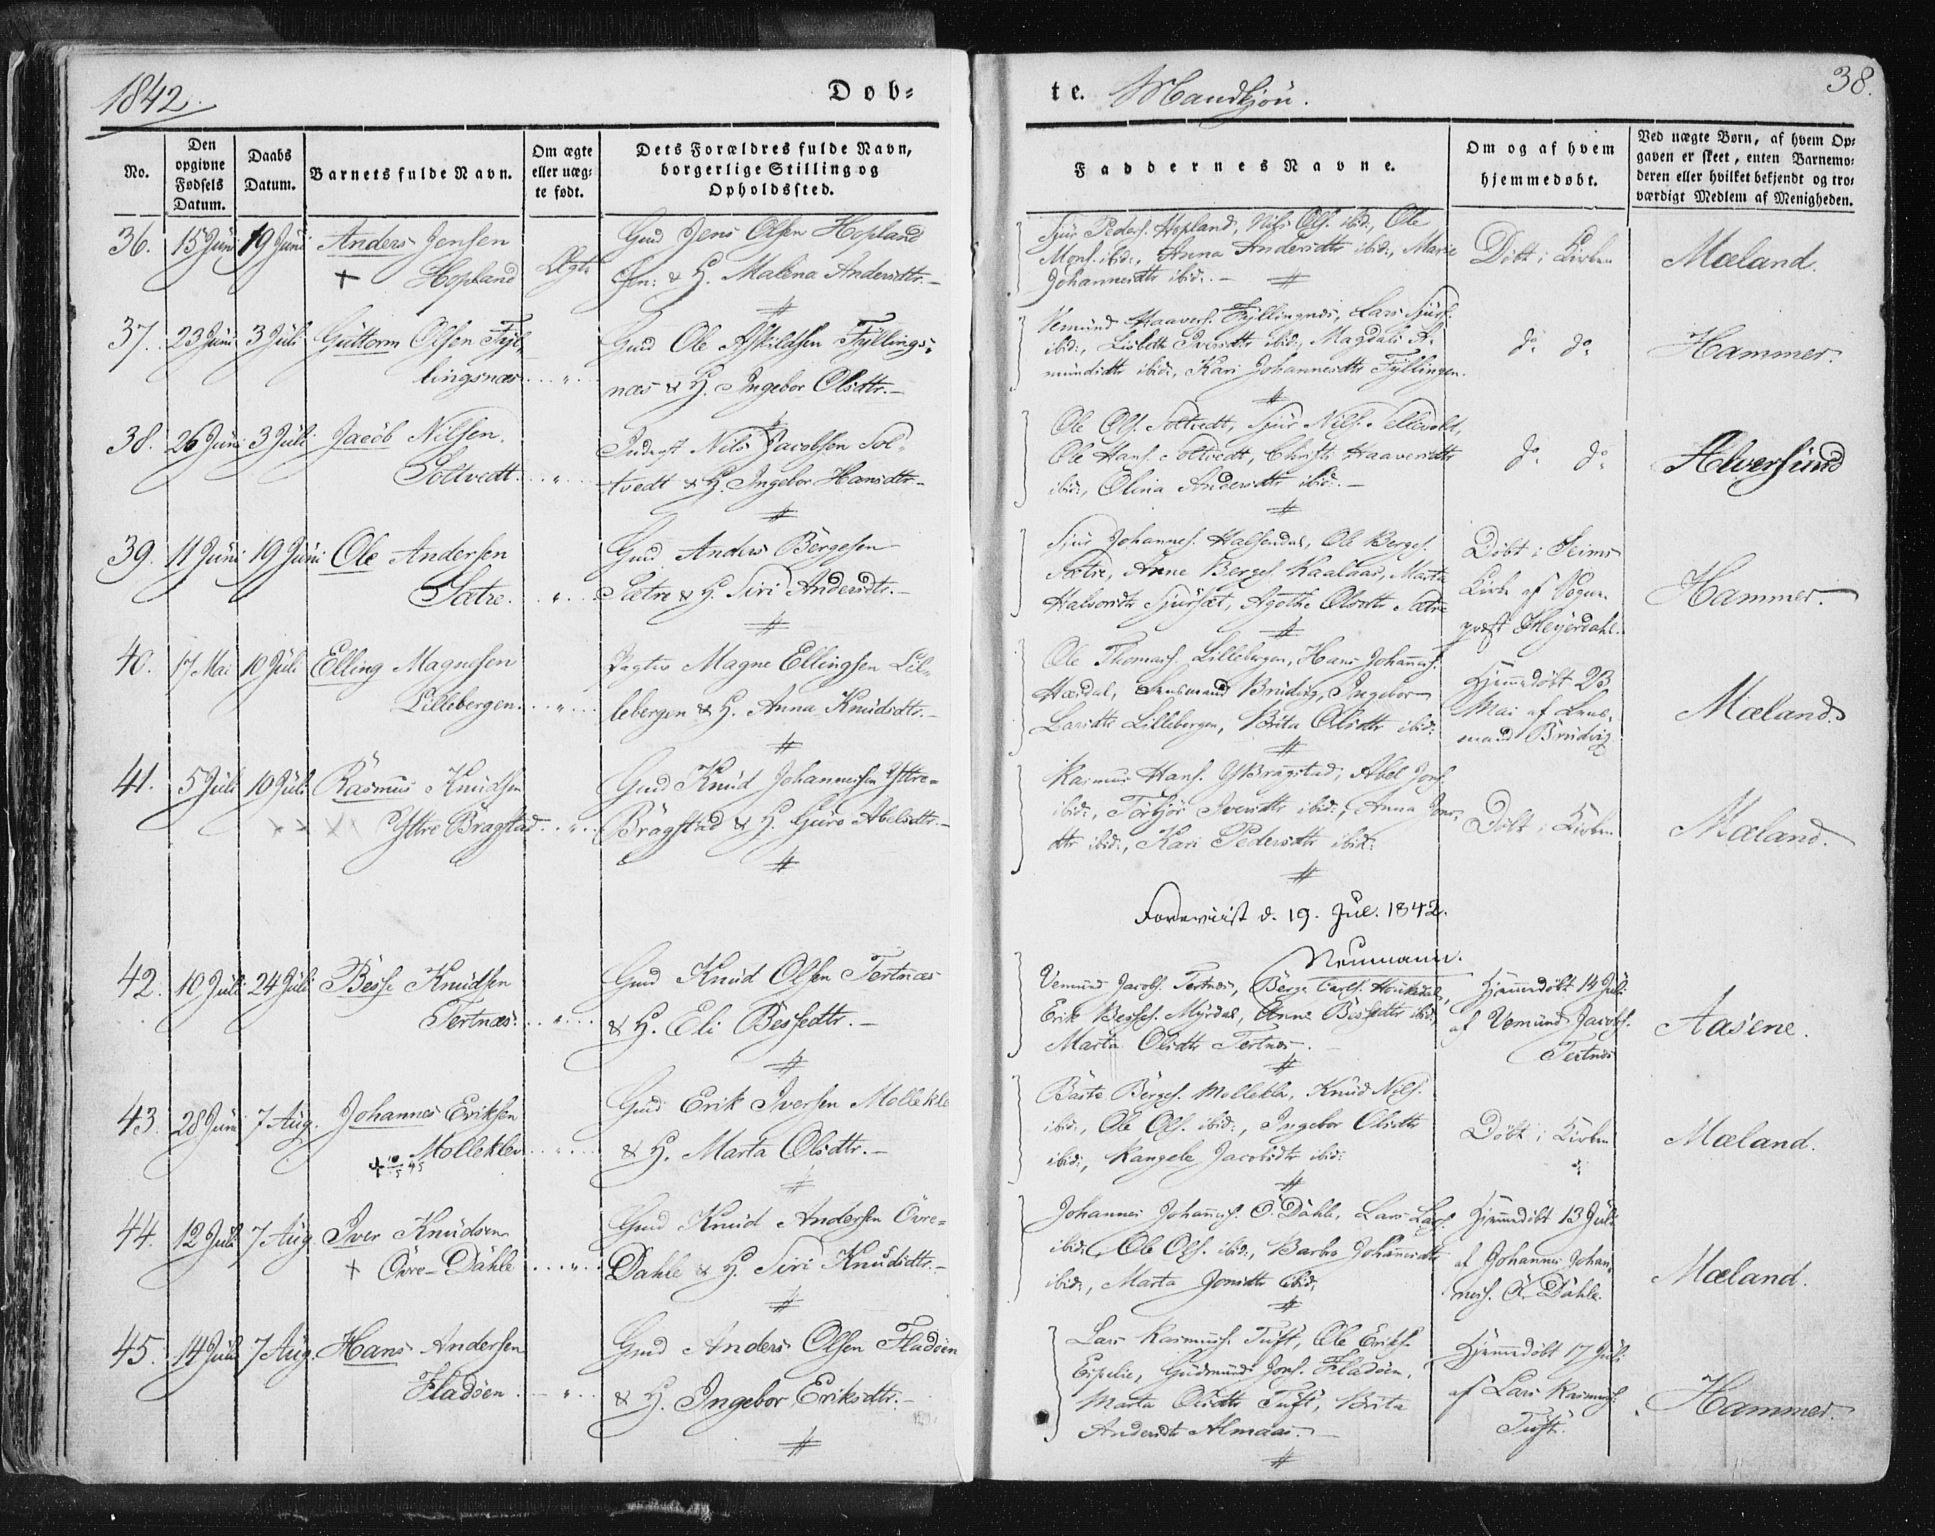 1842.
Døb-
te. Mandkjøn.
38.
No.
Den opgivne Fødsels Datum.
Daabs Datum.
Barnets fulde Navn.
Om ægte eller uæg- te født.
Dets Forældres fulde Navn, borgerlige Stilling og Opholdssted.
Faddernes Navne.
Om og af hvem hjemmedøbt.
Ved uægte Børn, af hvem Op- gaven er skeet, enten Barnemo- deren eller hvilket bekjendt og tro- værdigt Medlem af Menigheden.
36. 15 Juni 19 Juni Anders Jensen
+ Hopland
Ægte
Gmd Jens Olsen Hopland
& H. Malena Andersdtr.
Sjur Peders. Hopland, Nils Ols. ibid:, Ole
Mons. ibid:, Anna Andersdtr ibid:, Marie
Johannesdtr ibid:.
Døbt i Kirken
Mæland.
37. 23 Juni 3 Juli Guttorm Olsen Fyl-
lingsnæs
Gmd Ole Askildsen Fyllings-
næs & H. Ingebor Olsdtr.
Vemund Haavers. Fyllingnæs, Lars Sjurs.
ibid:, Lisbeth Iversdtr ibid:, Magdali A-
mundsdtr ibid:, Kari Johannesdtr Fyllingen.
do. do.
Hammer.
38. 26 Juni 3 Juli Jacob Nilsen
Soltvedt
Inderst Nils Jacobsen Sol-
tvedt & H. Ingebor Hansdtr.
Ole Ols. Soltvedt, Sjur Nils. Tellevold,
Ole Hans. Soltvedt, Christi Haaversdtr
ibid:, Olina Andersdtr ibid:.
do. do.
Alversund
39. 11 Juni 19 Juni Ole Andersen
Sætre.
Gmd Anders Børgesen
Sætre & H. Siri Andersdtr.
Sjur Johannes. Halsendal, Ole Børges.
Sætre, Anne Børges. Kaalaas, Marta
Halvorsdtr Sjursæt, Agathe Olsdtr Sætre
Døbt i Seims
Kirke af Sogne-
præst Heyerdahl.
Hammer.
40. 17 Mai 10 Juli Elling Magnesen
Lillebergen.
Magne Ellingsen Lil-
lebergen & H. Anna Knudsdtr.
Ole Thomas. Lillebergen, Hans Johannes.
Hærdal, Lensmand Brudvig, Ingebor
Larsdtr Lillebergen, Brita Olsdtr ibid:
Hjemmedøbt 23
Mai af Lens-
mand Brudvig
Mæland.
41. 5 Juli 10 Juli Rasmus Knudsen
Yttre Bragstad
Gmd Knud Johannessen Yttre-
Bragstad & H. Guro Abelsdtr.
Rasmus Hans. Y Bragstad, Abel Jons.
ibid:, Torbjør Iversdtr ibid:, Anna Jens-
dtr ibid:, Kari Pedersdtr ibid:
Døbt i Kirken
Mæland.
Foreviist d. 19. Jul. 1842.
Neumann.
42. 10 Juli 24 Juli Besse Knudsen
Tertnæs.
Gmd Knud Olsen Tertnæs
& H. Eli Bessedtr.
Vemund Jacobs. Tertnes, Børge Carls. Haukedal,
Erik Besses. Myrdal, Anne Bessedtr ibid:
Marta Olsdtr Tertnes.
Hjemmedøbt 14 Juli
af Vemund Jacobs.
Tertnes
Aasene.
43. 28 Juni 7 Aug. Johannes Eriksen
Molleklev
Gmd Erik Iversen Mollekle
& H. Marta Olsdtr.
Børte Børges. Mollekler, Knud Nils.
ibid:, Ole Ols. ibid:, Ingebor Olsdtr
ibid:, Rangele Jacobsdtr ibid:
Døbt i Kirken
Mæland.
44. 12 Juli 7 Aug. Iver Knudsen
+ Øvre-Dahle
Gmd Knud Andersen Øvre-
Dahle & H. Siri Knudsdtr.
Johannes Johannes. Ø. Dahle, Lars Lars.
ibid:, Ole Ols. ibid:, Barbro Johannesdtr
ibid:, Marta Jonsdtr ibid.
Hjemmedøbt 13 Juli
af Johannes Johan-
nes. Ø. Dahle.
Mæland.
45. 14 Juli 7 Aug. Hans Andersen
Fladøen
Gmd Anders Olsen Fladøen
& H. Ingebor Eriksdtr.
Lars Rasmus. Tuft, Ole Eriks.
Espelie, Gudmund Jons. Fladøen,
Marta Olsdtr Tuft, Brita
Andersdtr Almaas.
Hjemmedøbt 17 Juli
af Lars Rasmus.
Tuft.
Hammer.